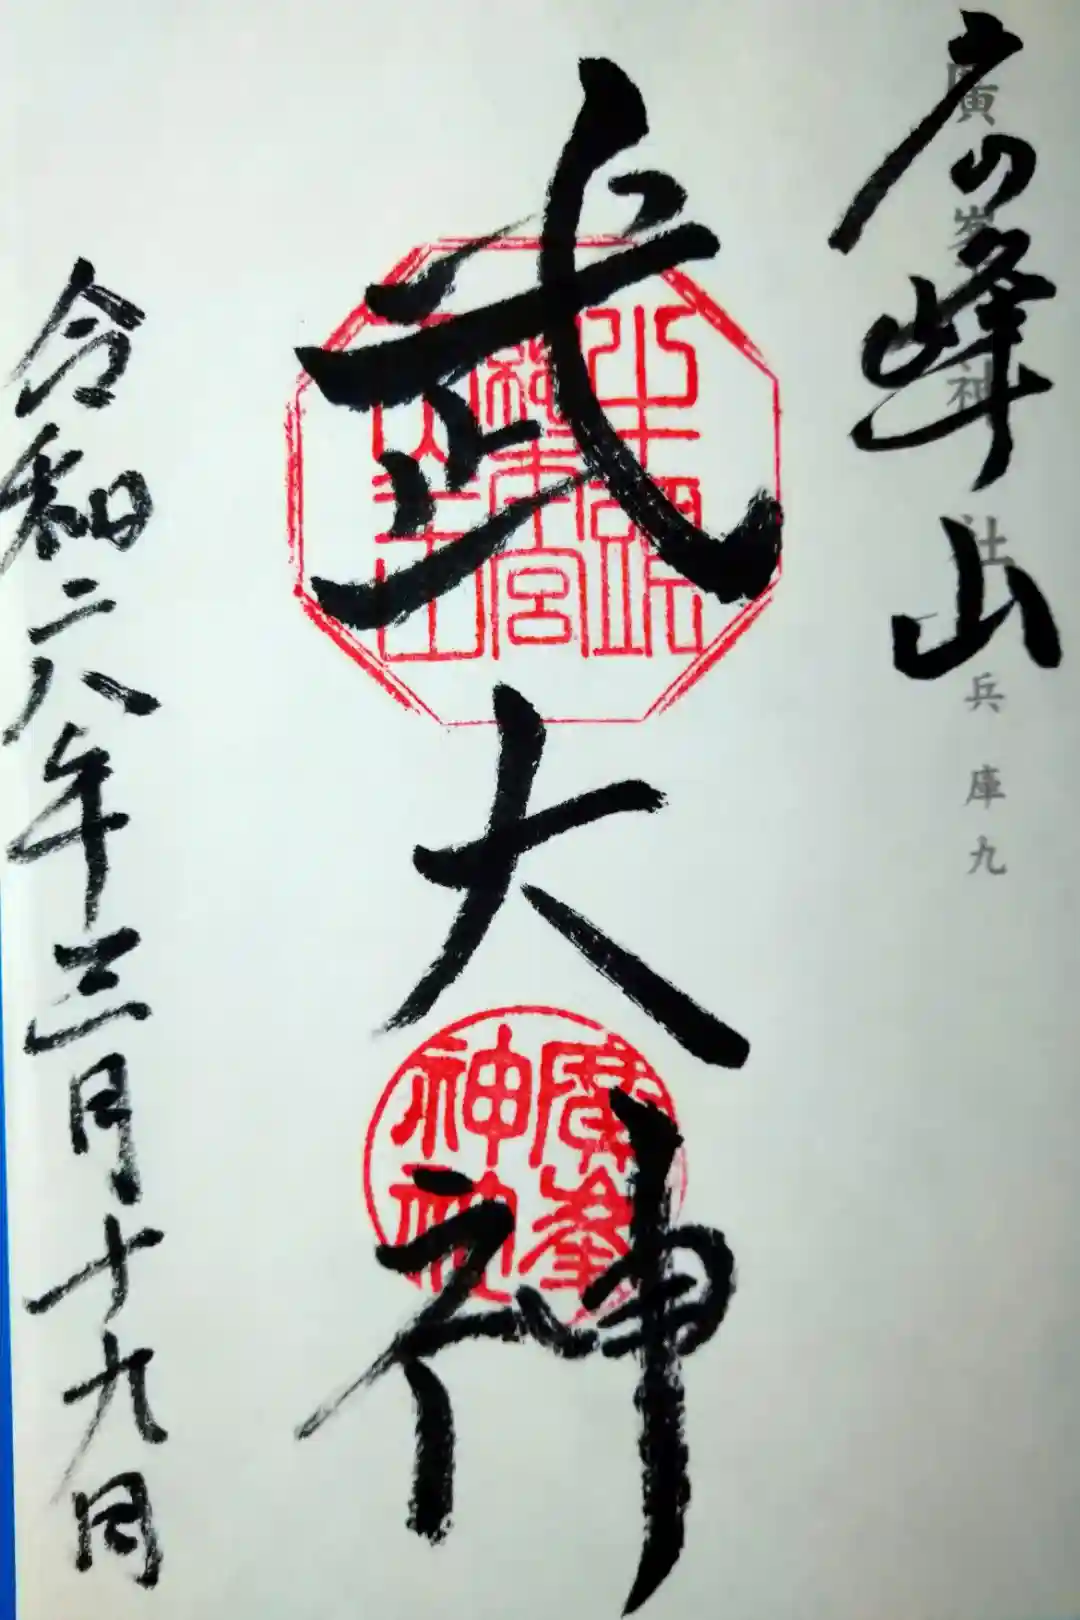 広峰山
廣峯神社 兵庫九
武大神
廣峯
神社
令和六年三月十九日